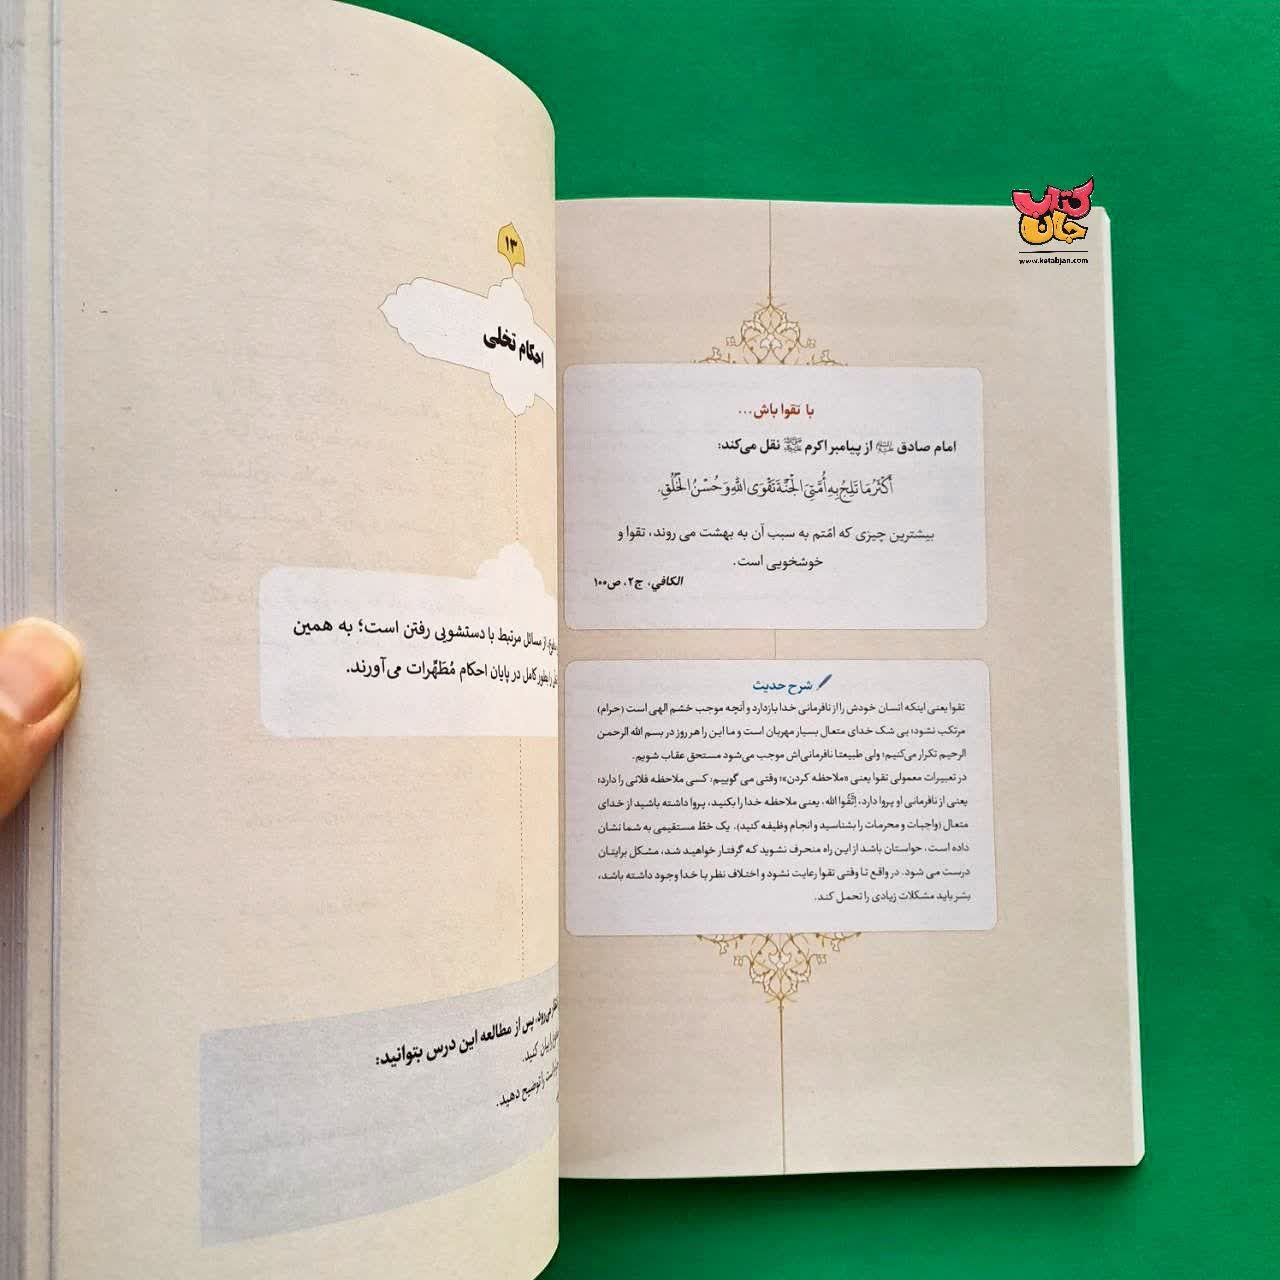 کتاب
جان
www.ketabjan.com
با تقوا باش...
امام صادق علیه‌السلام از پیامبر اکرم ﷺ نقل می‌کند:
أَكْثَرُ مَا تَلِجُ بِهِ أُمَّتِيَ الْجَنَّةَ تَقْوَى اللّٰهِ وَحُسْنُ الْخُلُقِ.
بیشترین چیزی که امّتم به سبب آن به بهشت می روند، تقوا و
خوشخویی است.
الکافي، ج۲، ص۱۰۰
شرح حدیث
تقوا یعنی اینکه انسان خودش را از نافرمانی خدا بازدارد و آنچه موجب خشم الهی است (حرام)
مرتکب نشود؛ بی شک خدای متعال بسیار مهربان است و ما این را هر روز در بسم الله الرحمن
الرحیم تکرار می‌کنیم؛ ولی طبیعتا نافرمانی‌اش موجب می‌شود مستحق عقاب شویم.
در تعبیرات معمولی تقوا یعنی «ملاحظه کردن»؛ وقتی می گوییم: کسی ملاحظه فلانی را دارد؛
یعنی از نافرمانی او پروا دارد، اِتَّقُوا الله، یعنی ملاحظه خدا را بکنید، پروا داشته باشید از خدای
متعال (واجبات و محرمات را بشناسید و انجام وظیفه کنید). یک خطّ مستقیمی به شما نشان
داده است، حواستان باشد از این راه منحرف نشوید که گرفتار خواهید شد، مشکل برایتان
درست می شود. در واقع تا وقتی تقوا رعایت نشود و اختلاف نظر با خدا وجود داشته باشد،
بشر باید مشکلات زیادی را تحمل کند.
۱۳
احکام تخلی
از مسائل مرتبط با دستشویی رفتن است؛ به همین
کامل در پایان احکام مُطَهِّرات می‌آورند.
می‌رود، پس از مطالعه این درس بتوانید:
بیان کنید.
را توضیح دهید.